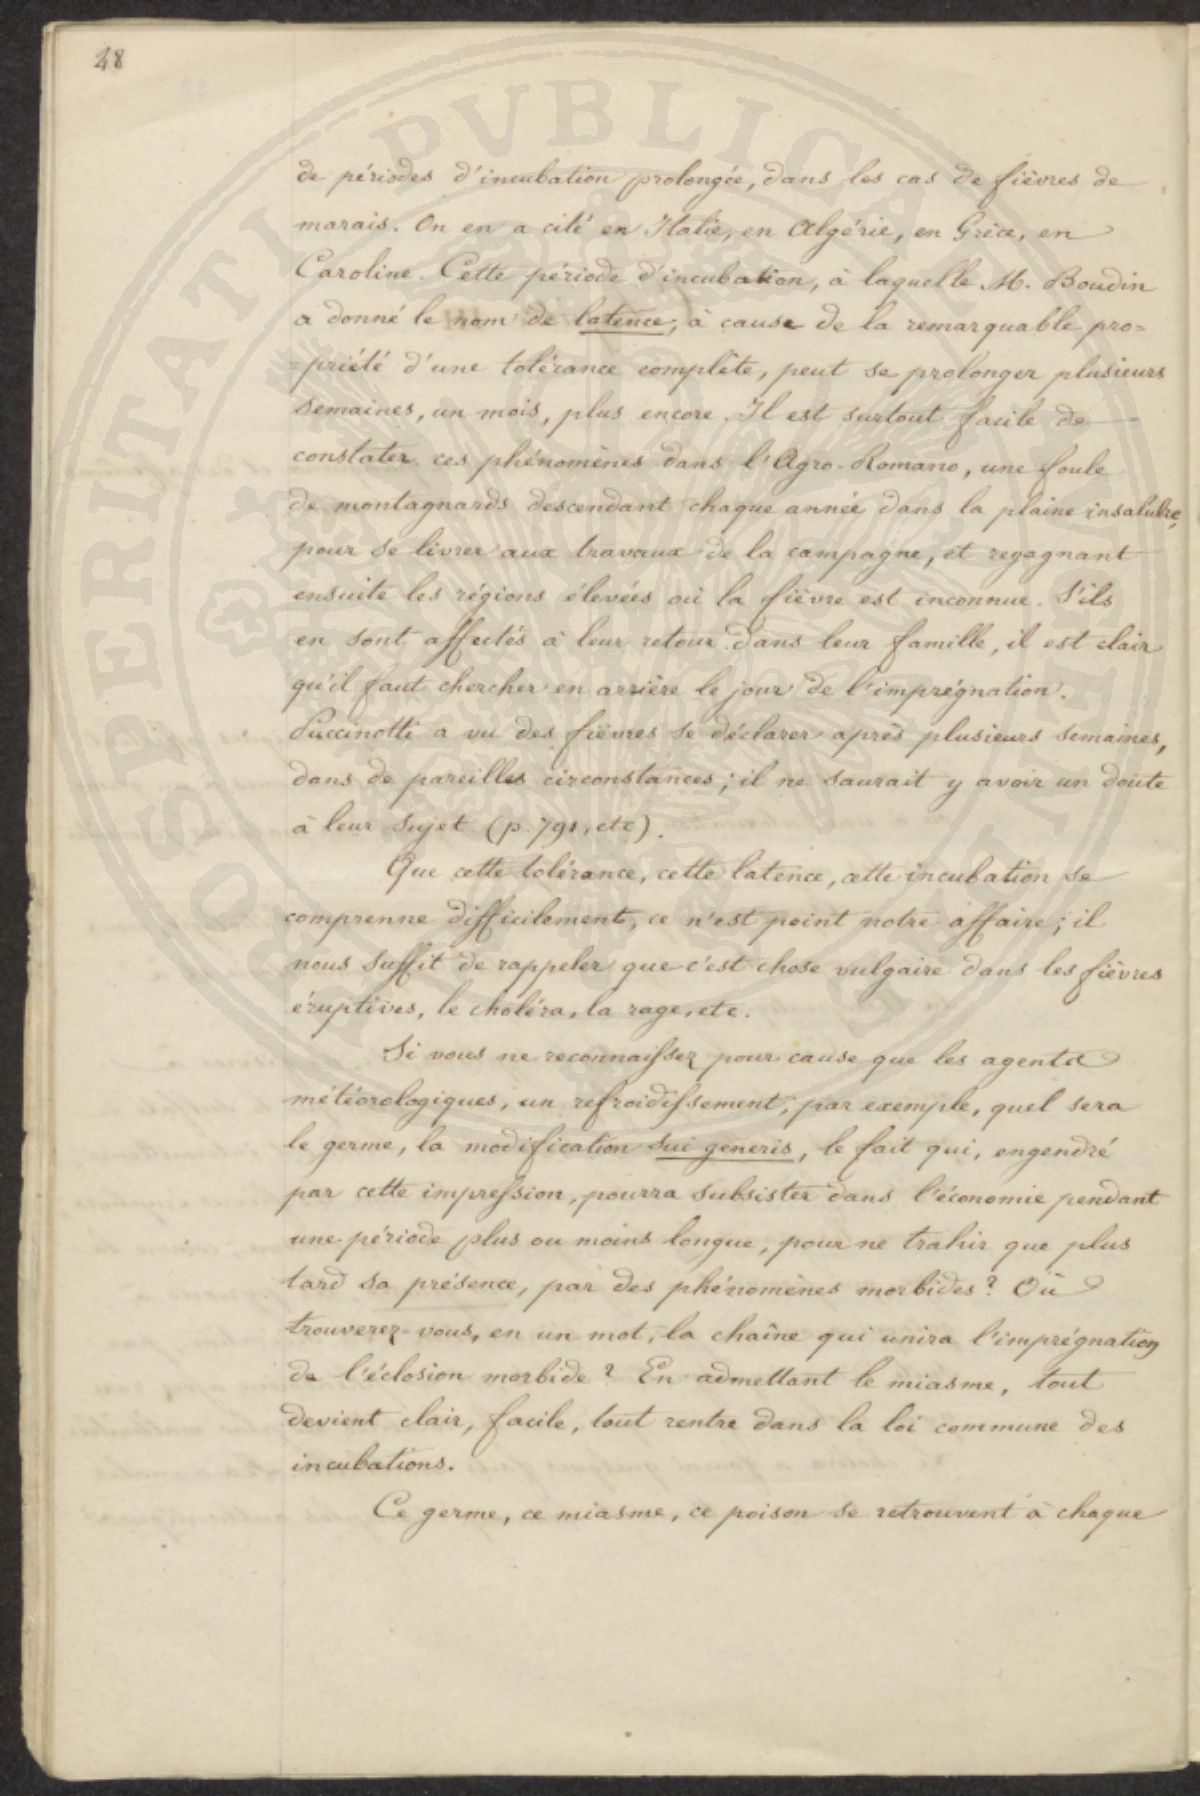 48
de périodes d'incubation prolongée, dans les cas de fièvres de
marais. On en a cité en Italie, en Algérie, en Grèce, en
Caroline. Cette période d'incubation, à laquelle M. Boudin
a donné le nom de latence, à cause de la remarquable pro=
=priété d'une tolérance complète, peut se prolonger plusieurs
semaines, un mois, plus encore. Il est surtout facile de
constater ces phénomènes dans l'Agro-Romano, une foule
de montagnards descendant chaque année dans la plaine insalubre,
pour se livrer aux travaux de la campagne, et regagnant
ensuite les régions élevées où la fièvre est inconnue. S'ils
en sont affectés à leur retour dans leur famille, il est clair
qu'il faut chercher en arrière le jour de l'imprégnation.
Puccinotti a vu des fièvres se déclarer après plusieurs semaines,
dans de pareilles circonstances; il ne saurait y avoir un doute
à leur sujet (p. 791, etc).
Que cette tolérance, cette latence, cette incubation se
comprenne difficilement, ce n'est point notre affaire; il
nous suffit de rappeler que c'est chose vulgaire dans les fièvres
éruptives, le choléra, la rage, etc.
Si vous ne reconnaissez pour cause que les agents
météorologiques, un refroidissement, par exemple, quel sera
le germe, la modification sui generis, le fait qui, engendré
par cette impression, pourra subsister dans l'économie pendant
une période plus ou moins longue, pour ne trahir que plus
tard sa présence, par des phénomènes morbides? Où
trouverez-vous, en un mot, la chaîne qui unira l'imprégnation
de l'éclosion morbide? En admettant le miasme, tout
devient clair, facile, tout rentre dans la loi commune des
incubations.
Ce germe, ce miasme, ce poison se retrouvent à chaque
PROSPERITATI PUBLICAE